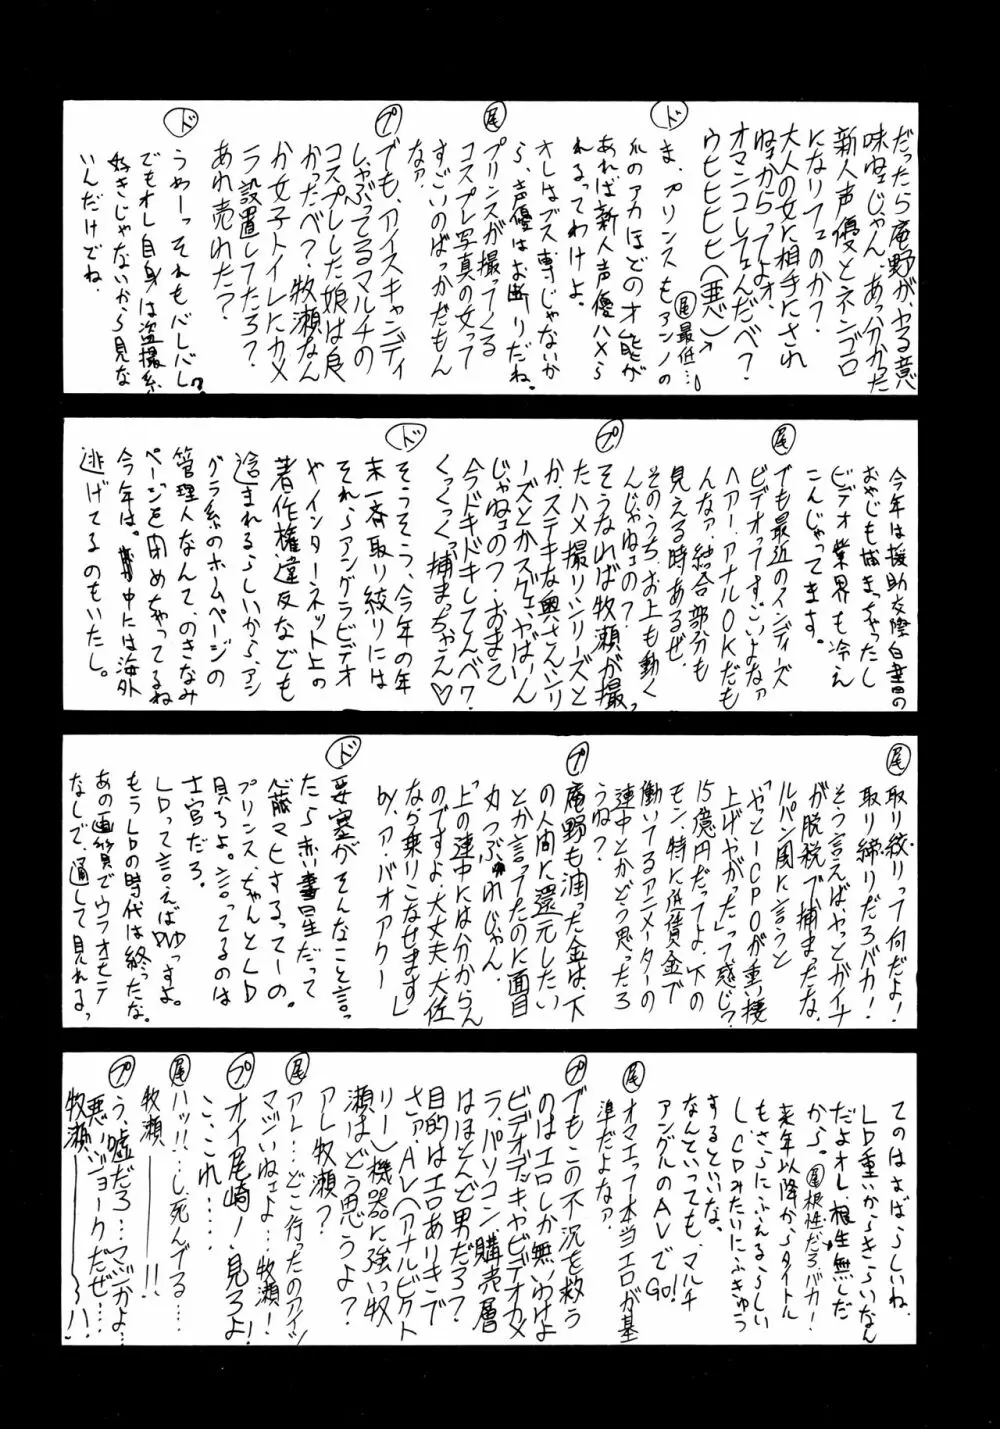 だったら庵野がヤる意
味ねェじゃん、あっかかった
新人声優とネンゴロ
になりフェのか?
大人の女に相手にされ
ねェからってよォ、
オマンコレフェんだべ?
ウヒヒヒヒヒ(悪)
尾 最低…。
ド ま、プリンスもアンノの
爪のアカほどのオ能が
あれば新人声優ハメら
れるってわけよ。
オレはブス専じゃないか
ら、声優はお断りだね。
尾 プリンスが撮ってくる
コスプレ写真の女って
すごいのばっかだもん
なァ。
プ でも、アイスキャンディ
しゃぶってるマルチの
コスプレした娘は良
かったべ?牧瀬なん
か女子トイレにカメ
ラ設置してたろ?
あれ売れた?
ド うわーっそれもバレバレ?
でもオレ自身は盗撮系
好きじゃないから見な
いんだけどね。
今年は援助交際白書の
おやじも捕まっちゃったし
ビデオ業界も冷え
こんじゃってます。
尾 でも最近のインディーズ
ビデオってすごいよなァ
ヘアー・アナルOKだも
んなァ、結合部分も
見える時あるぜ。
そのうちお上も動く
んじゃねェの?
プ そうなれば牧瀬が撮っ
たハメ撮りシリーズと
か、ステキな奥さんシリ
ーズとかスゲェやばいん
じゃねェの?おまえ
今ドキドキしてんべ?
くっくっくっ捕まっちゃえ♡
ド そうそう、今年の年
末一斉取り絞りには
それらアングラビデオ
やインターネット上の
著作権違反なども
込まれるらしいから、アン
グラ系のホームページの
管理人なんて、のきなみ
ページを閉めちゃってるね
今年は。中には海外
逃げてるのもいたし。
尾 取り絞りって何だよ!
取り締りだろバカ!
そう言えばやっとガイナ
が脱税で捕まったな、
ルパン風に言うと
「やっとICPOが重い腰
上げやがった」って感じ?
15億円だってよ、下の
モン、特に低賃金で
働いてるアニメーターの
連中とかどう思ったろ
うね?
プ 庵野も浦った金は、下
の人間に還元したい
とか言ってたのに面目
丸つぶれじゃん。
「上の連中にはわからん
のですよ、大丈夫、大佐
なら乗りこなせます」
by、ア・バオアクー
ド 要塞がそんなこと言っ
たら赤い彗星だって
心臓マヒするってーの。
プリンス、ちゃんとLD
見ろよ。言ってるのは
士官だろ。
LDって言えばDVDっすよ。
もうLDの時代は終ったな。
あの画質でウラオモテ
なしで、通して見れるっ
てのはすばらしいね。
LD重いからきらいなん
だよオレ、根性無しだ
から。尾 根性だろ、バカ!
来年以降からタイトル
もさらにふえるらしい
し、CDみたいにふきゅう
するといいな。
なんといっても、マルチ
アングルのAVでGo!
尾 オマエって本当エロが基
準だよなァ。
プ でもこの不況を救う
のはエロしか無いわけよ
ビデオデッキやビデオカメ
ラ、パソコン、購売層
はほとんど男だろ?
目的はエロありきで
さァ、AV(アナルビクト
リー)機器に強い牧
瀬はどう思うよ?
アレ牧瀬?
尾 アレ…どこ行ったのアイツ
マジいねェよ…牧瀬!
プ オイ尾崎!見ろよ!
こ、これ……
尾 ハッ!!…し死んでる…
牧瀬――――!!
プ う、嘘だろ…マジかよ…
悪いジョークだぜ…
牧瀬――――〜ハ!